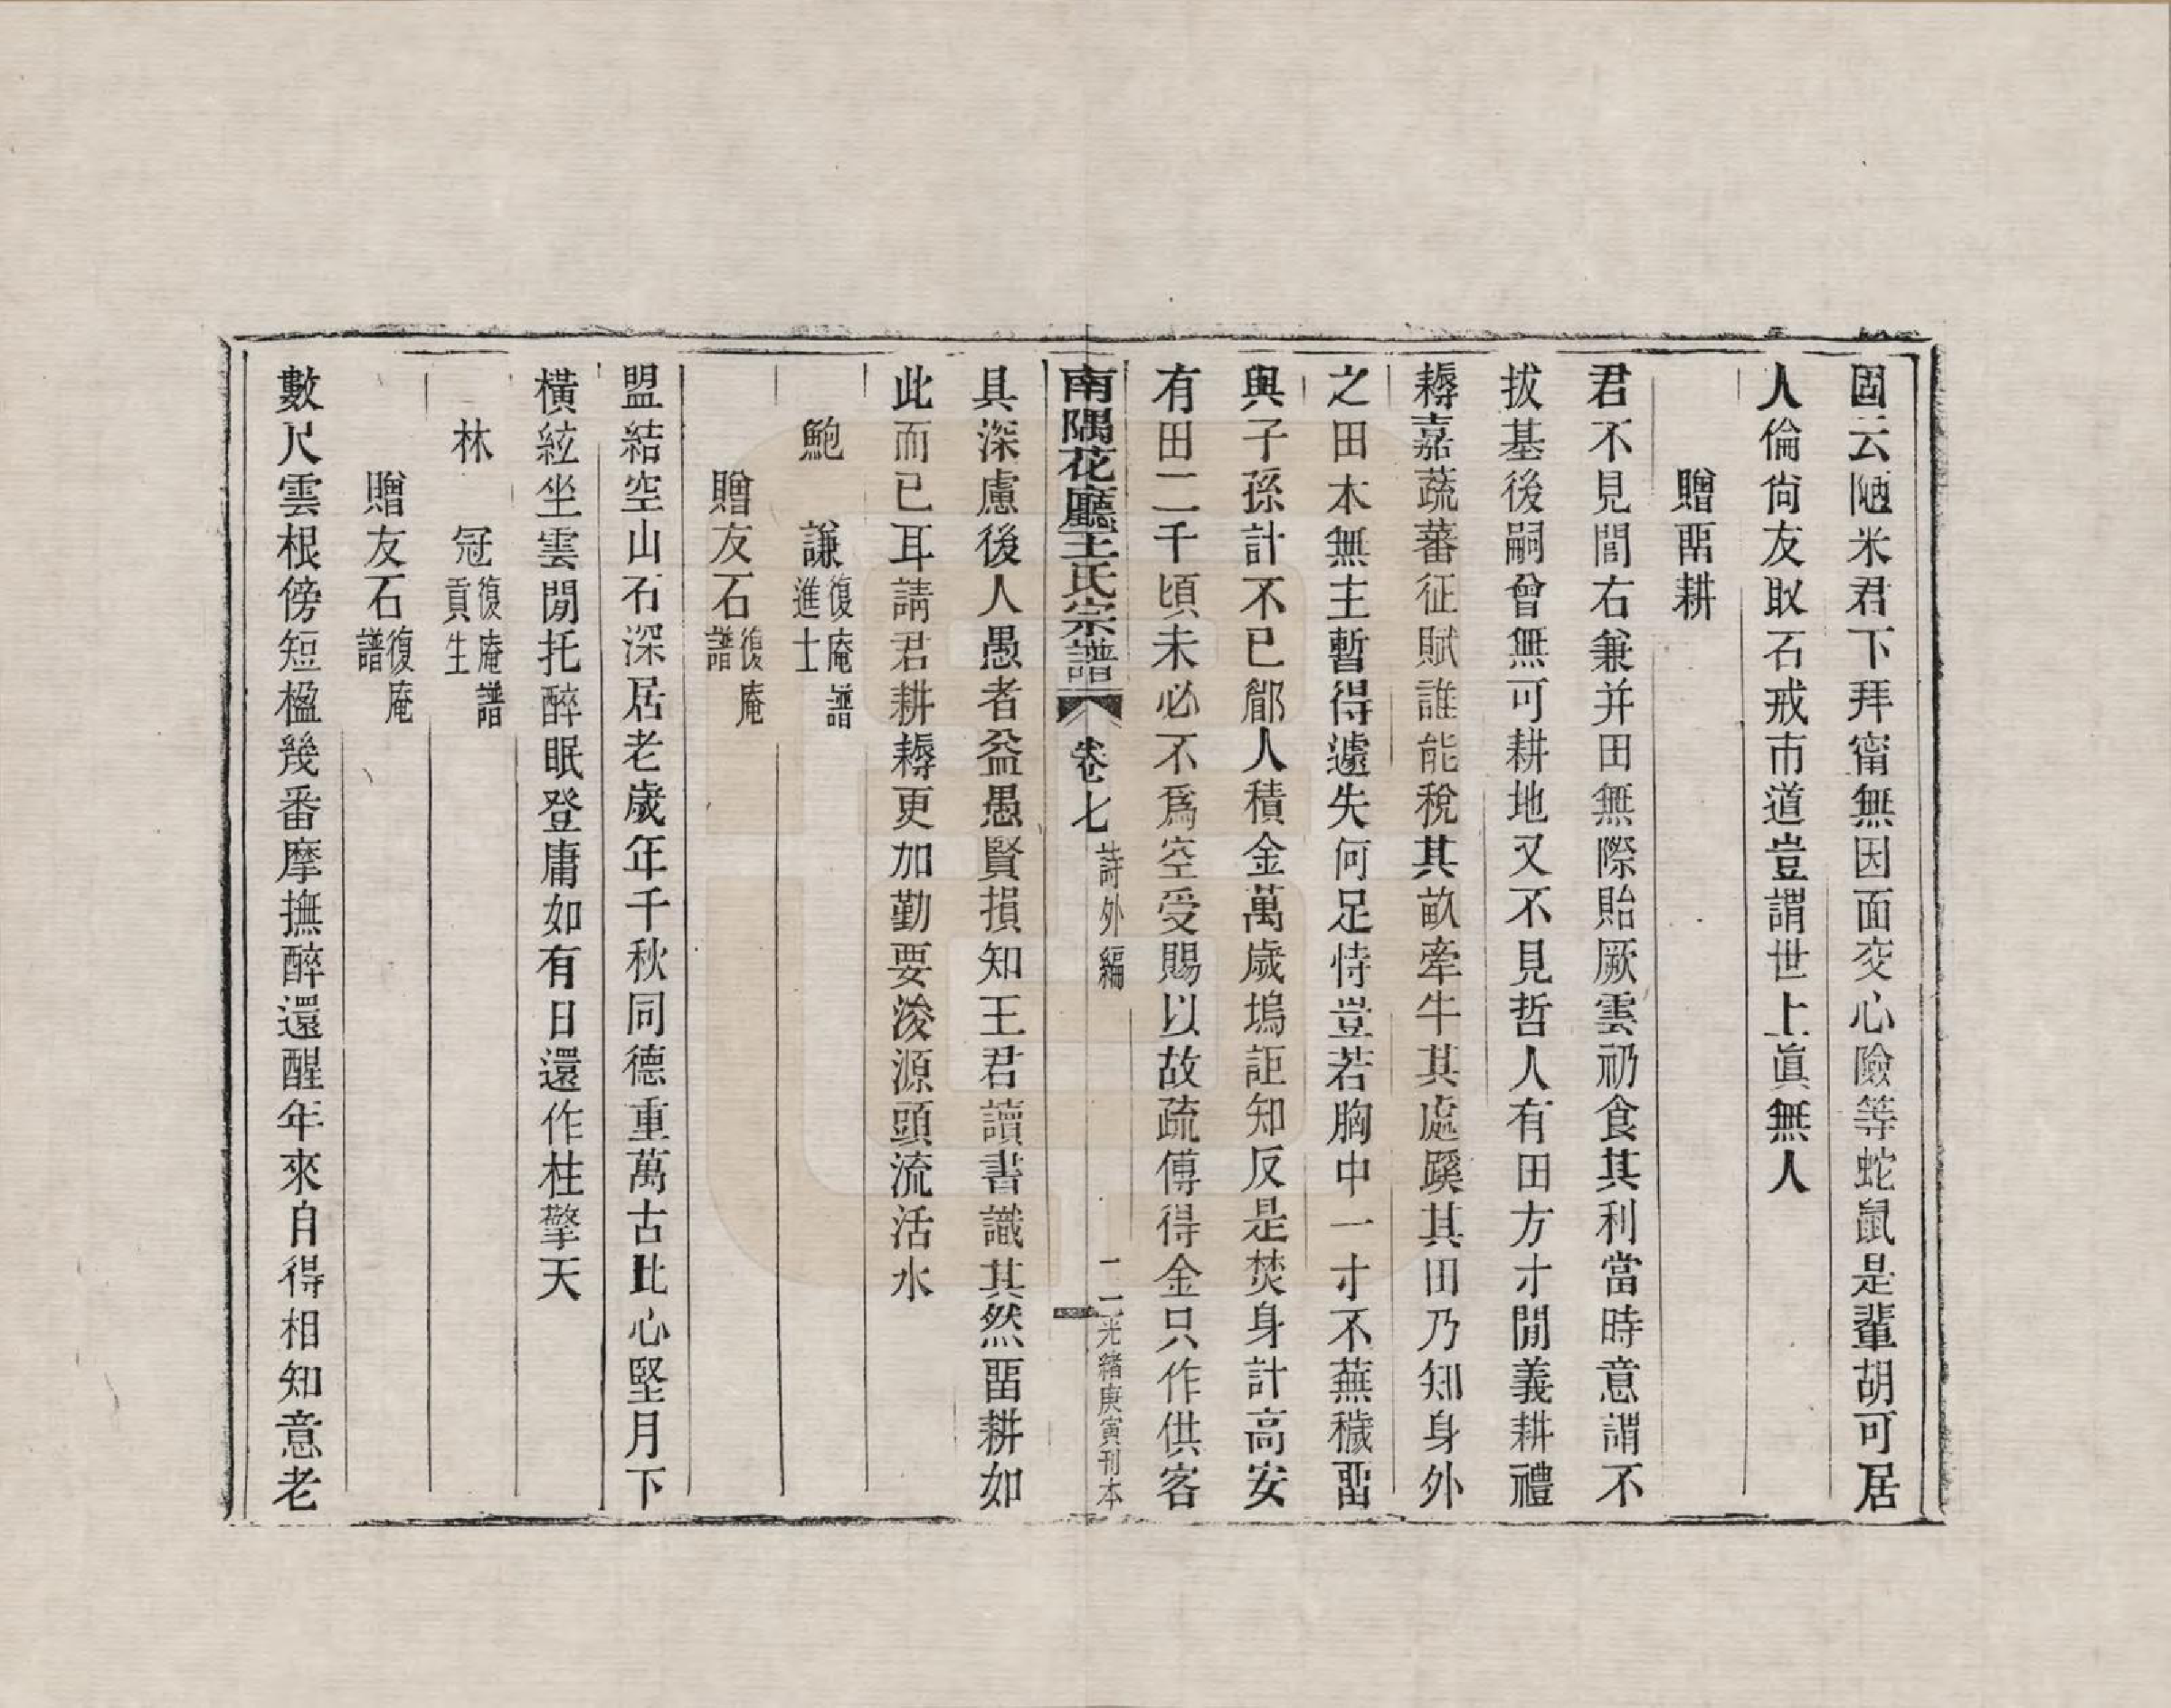 固云陋米君下拜甯無因面交心險等蛇鼠是輩胡可居
人倫尙友取石戒市道豈謂世上眞無人
贈畱耕
君不見閭右兼并田無際貽厥雲礽食其利當時意謂不
拔基後嗣曾無可耕地又不見哲人有田方才閒義耕禮
耨嘉蔬蕃征賦誰能稅其畝牽牛其處蹊其田乃知身外
之田本無主暫得遽失何足恃豈若胸中一寸不蕪穢畱
與子孫計不已鄙人積金萬歲塢詎知反是焚身計高安
有田二千頃未必不爲空受賜以故疏傅得金只作供客
南隅花廳王氏宗譜
卷七
詩外編
二二
光緒庚寅刊本
具深慮後人愚者益愚賢損知王君讀書識其然畱耕如
此而已耳請君耕耨更加勤要浚源頭流活水
鮑　謙復庵譜進士
贈友石復庵譜
盟結空山石深居老歲年千秋同德重萬古此心堅月下
橫絃坐雲閒托醉眠登庸如有日還作柱擎天
林　冠復庵譜貢生
贈友石復庵譜
數尺雲根傍短楹幾番摩撫醉還醒年來自得相知意老